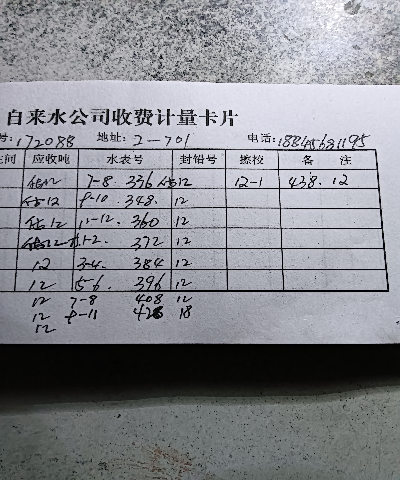 自来水公司收费计量卡片
号:172088 地址:2-701 电话:18845681195
间 应收吨 水表号 封铅号 擦校 备 注
估12 7-8. 336 估12 12-1 438. 12
估12 9-10 348. 12
估12 11-12. 360 12
1-2. 372 12
12 3-4. 384 12
12 5-6. 396 12
12 7-8 408 12
12 9-11 426 18
12